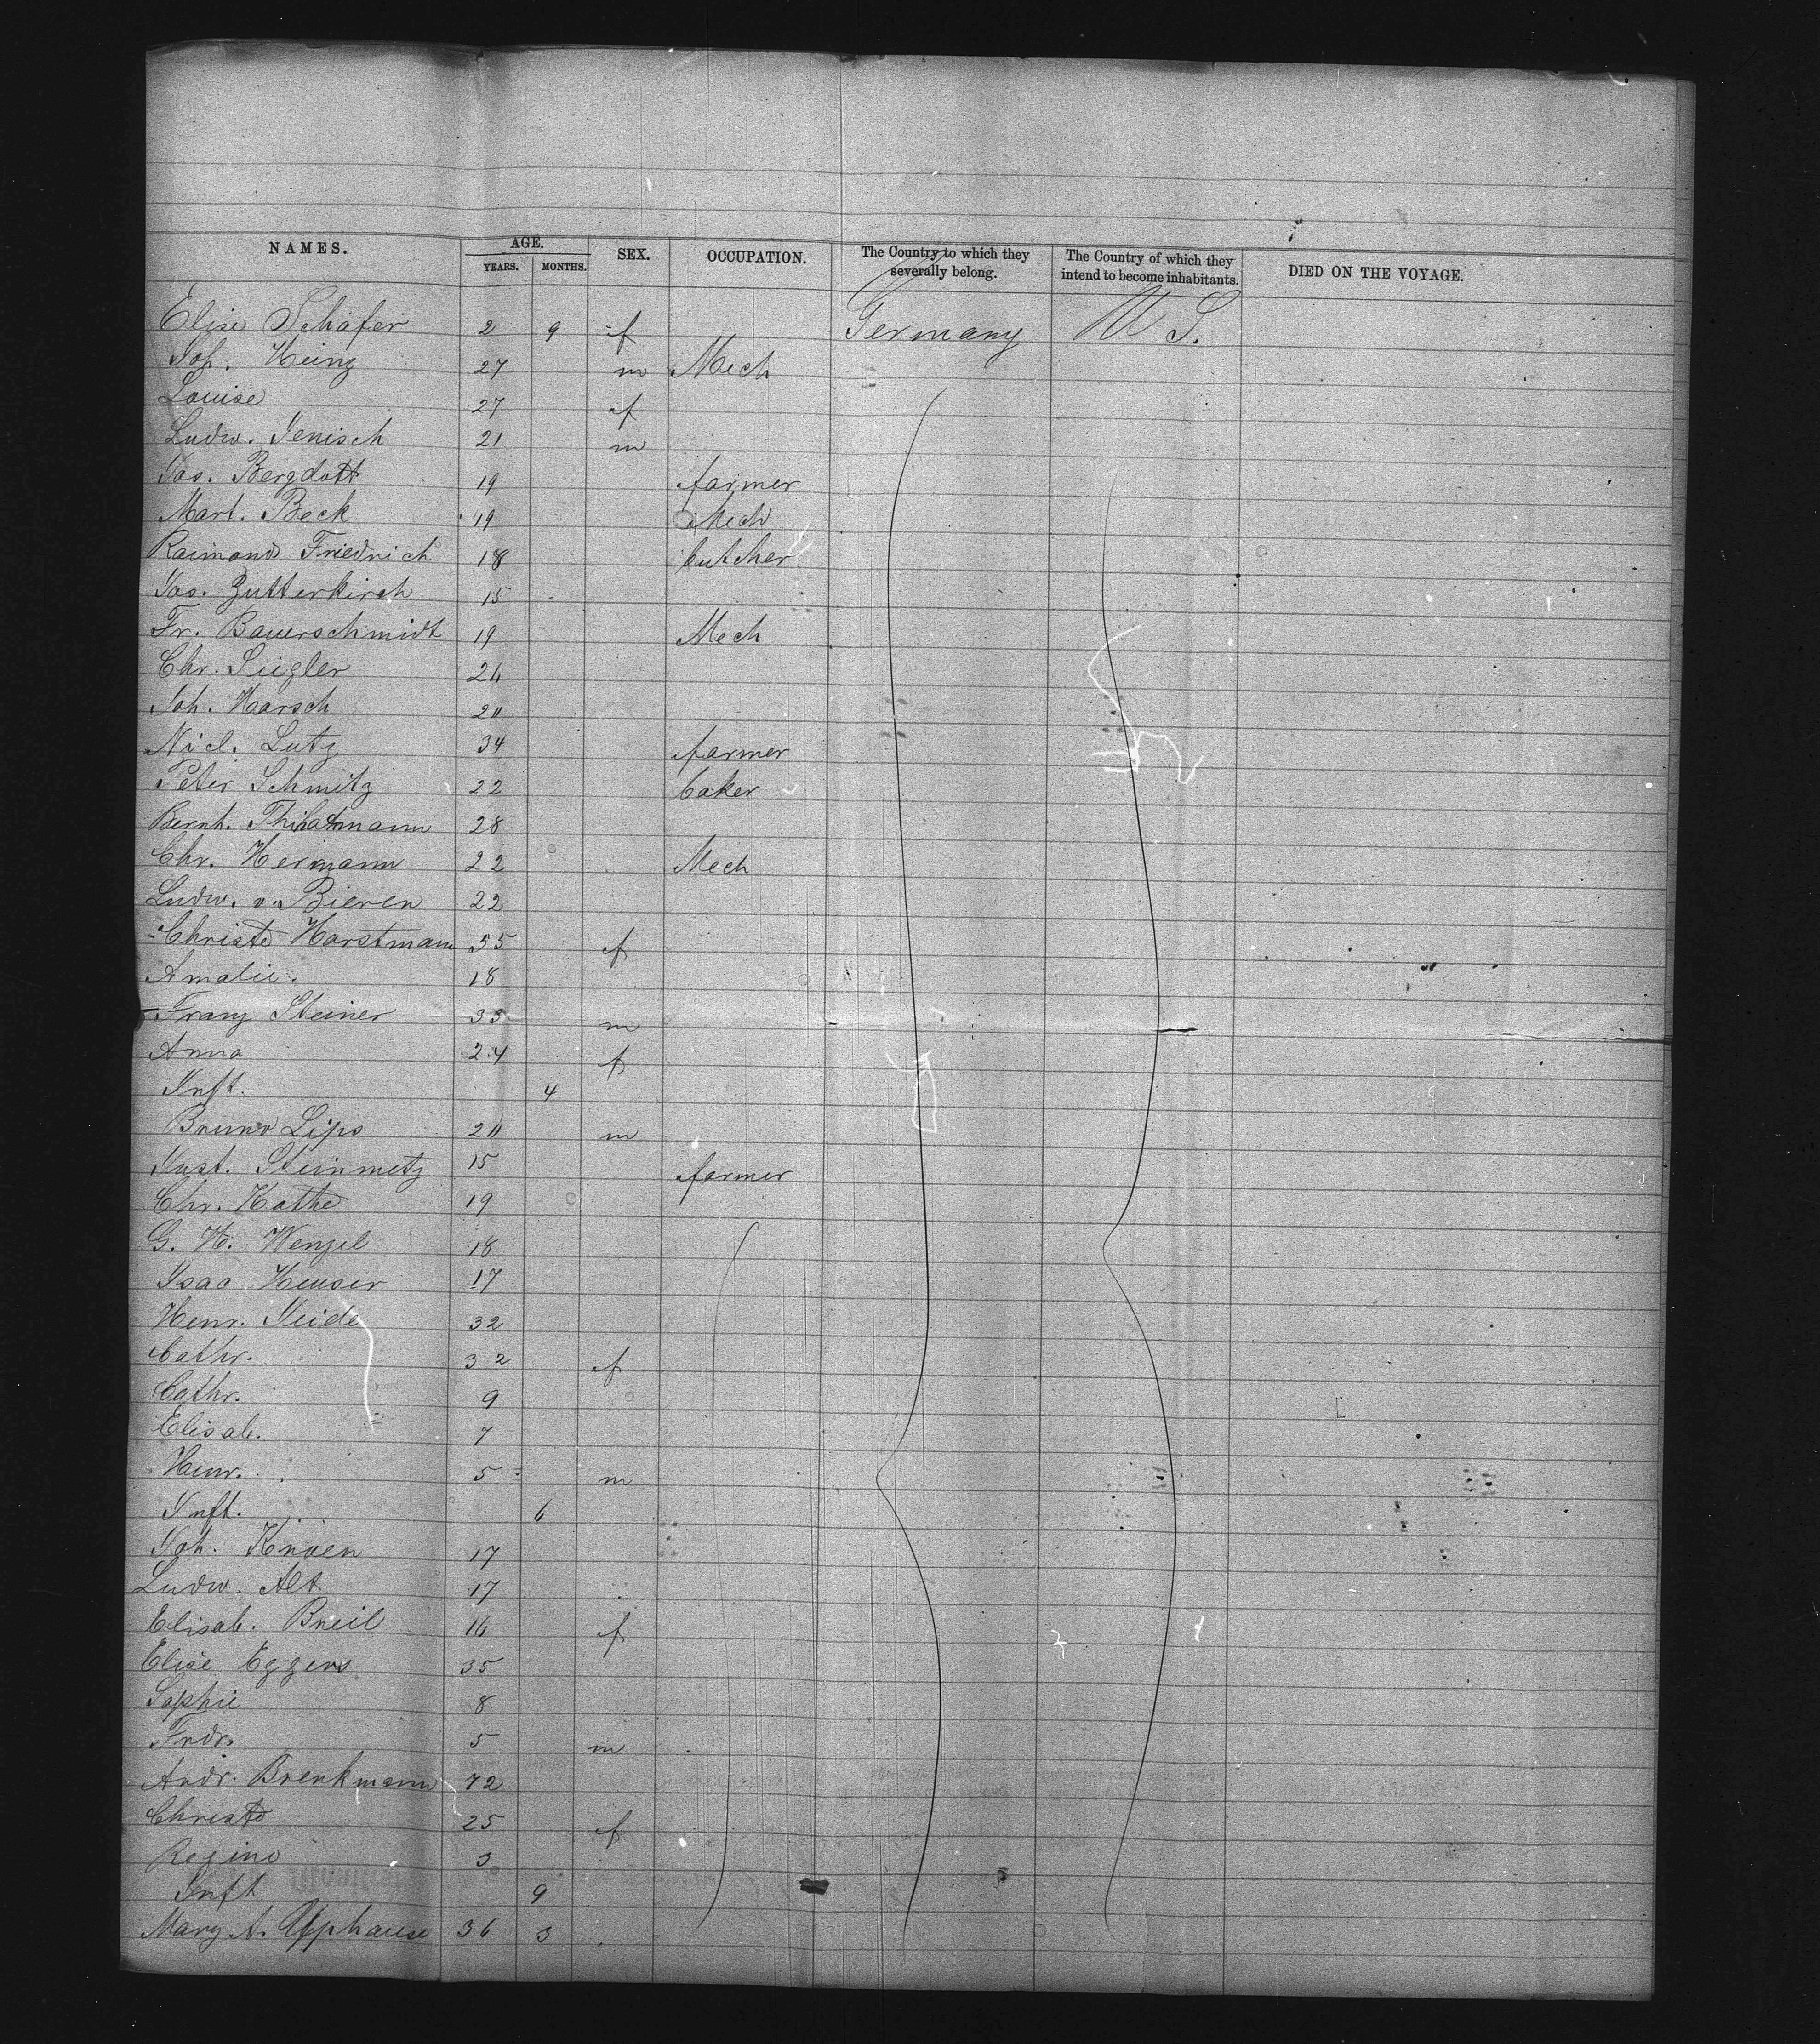 NAMES. AGE. SEX. OCCUPATION. The Country to which they severally belong. The Country of which they intend to become inhabitants. DIED ON THE VOYAGE.
YEARS. MONTHS.
Elise Schäfer 2 9 f Germany U S.
Joh. Heinz 27 m Mech
Louise 27 f
Ludw. Jenisch 21 m
Jos. Bergdott 19 farmer
Mart. Beck 19 Mech
Raimond Friedrich 18 butcher
Jos. Zutterkirch 15
Fr. Bauerschmidt 19 Mech
Chr. Siegler
Joh. Harsch 20
Nicl. Lutz 34 farmer
Peter Schmitz 22 baker
Bernh. 28
Chr. Hermann 22 Mech
Ludw. v. Bieren 22
Christe Horstmann 55 f
Amalie. 18
Franz Steiner 33 m
Anna 24 f
Inft. 4
Bruno Lips 20 m
Just. Steinmetz 15 farmer
Chr. Kothe 19
G. H. Wenzel 18
Isaa Heuser 17
Henr. 32
Cathr. 32 f
Cathr. 9
Elisab. 7
Henr. 5 m
Inft. 6
Joh. 17
Ludw. Alt. 17
Elisab. Breil 16 f
Elise Eggers 35
Sophie 8
Frdr. 5 m
Andr. Brenkmann 72
Christe 25 f
Regine 3
Inft 9
Mary A. Upphause 36 3